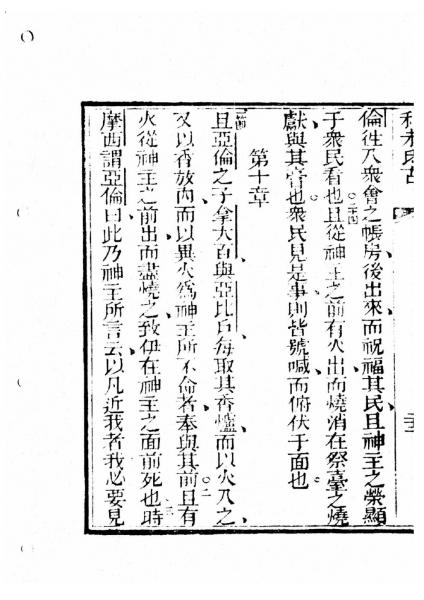 利未氏古
倫徃入衆會之帳房後出來而祝福其民且神主之榮顯
于衆民看也二十四且從神主之前有火出而燒消在祭臺之燒
獻與其膏也衆民見是事則皆號喊而俯伏于面也
第十章
一節且亞倫之子拿大百與亞比戶每取其香爐而以火入之
又以香放內而以異火爲神主所不命者奉與其前二且有
火從神主之前出而盡燒之致伊在神主之面前死也三時
摩西謂亞倫曰此乃神主所言云以凡近我者我必要見